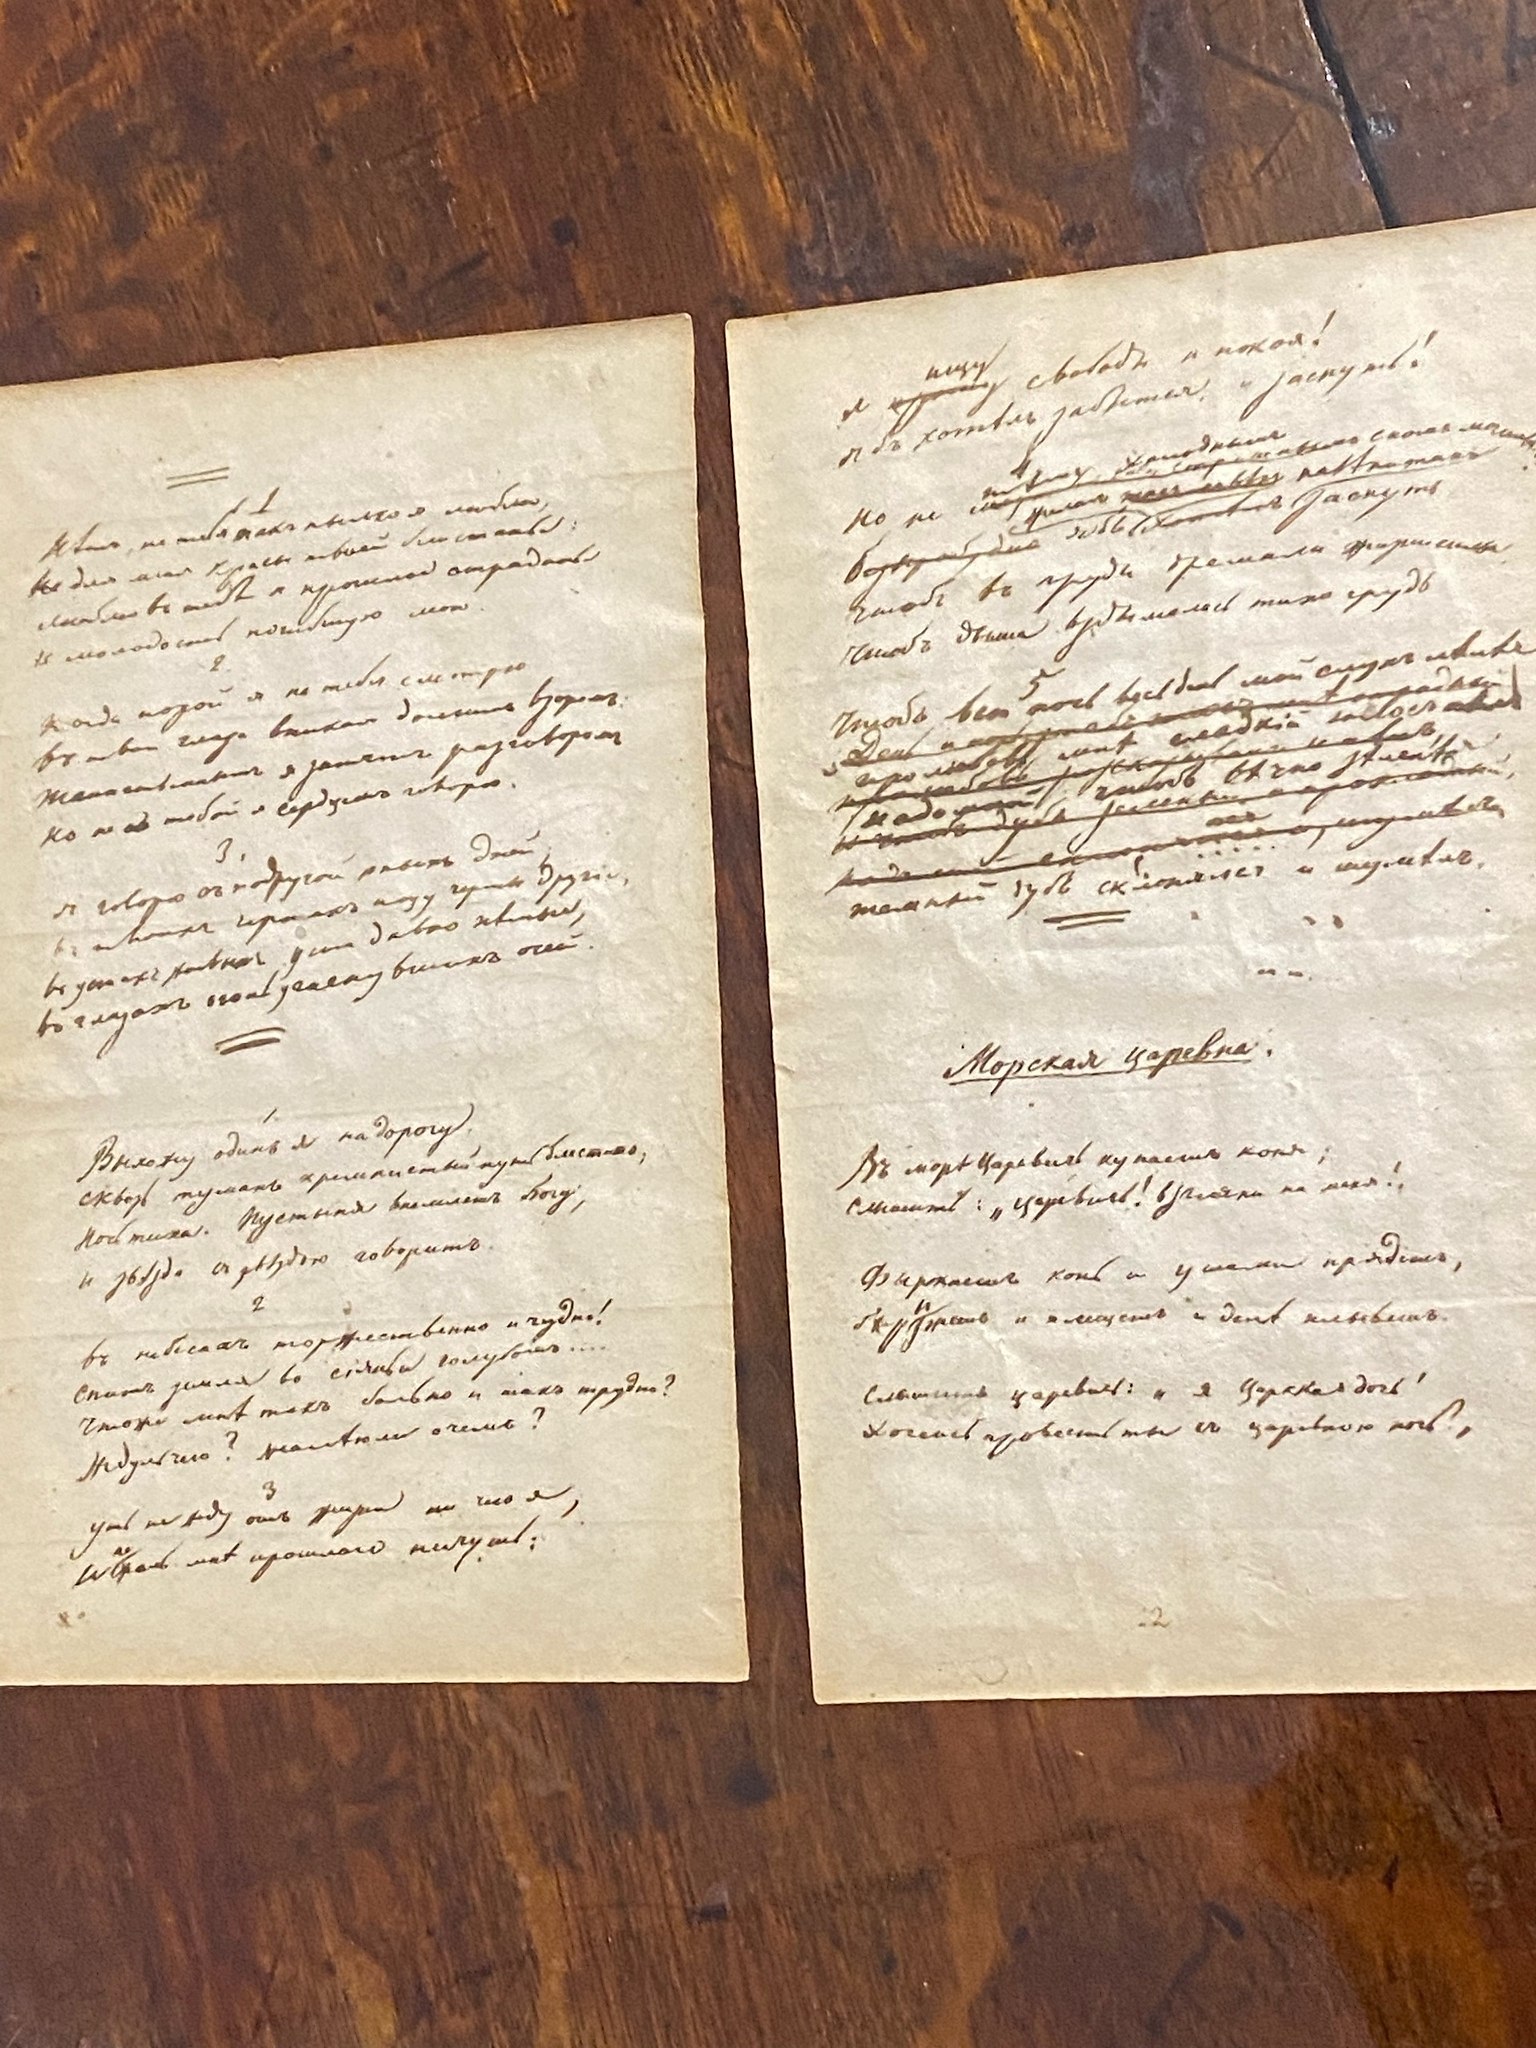 1
Нѣтъ, не тебя такъ пылко я люблю,
Не для меня красы твоей блистанье:
Люблю въ тебѣ я прошлое страданье
И молодость погибшую мою.
2
Когда порой я на тебя смотрю
Въ твои глаза вникая долгимъ взоромъ:
Таинственнымъ я занятъ разговоромъ
Но не съ тобой я сердцемъ говорю.
3.
Я говорю съ подругой юныхъ дней;
Въ твоихъ чертахъ ищу черты другія,
Въ устахъ живыхъ уста давно нѣмые,
Въ глазахъ огонь угаснувшихъ очей.
1
Выхожу одинъ я на дорогу.
Сквозь туманъ кремнистый путь блеститъ,
Ночь тиха. Пустыня внемлетъ богу,
И звѣзда съ звѣздою говоритъ.
2
Въ небесахъ торжественно и чудно!
Спитъ земля въ сіяньи голубомъ....
Что же мнѣ такъ больно и такъ трудно?
Жду ль чего? жалѣю ли о чемъ?
3
Ужъ не жду отъ жизни ни чего я,
И не жаль мнѣ прошлаго ничуть:
ищу
Я свободы и покоя!
Я бъ хотѣлъ забыться и заснуть!
4
холоднымъ
Но не
я бъ желалъ навѣки такъ
заснуть
Чтобъ въ груди дремали жизни силы
Чтобъ дыша вздымалась тихо грудь
5
Чтобъ всю ночь весь день мой слухъ лелѣя
про любовь мнѣ сладкій голосъ пѣлъ
надо мной чтобъ вѣчно зеленѣя
темный дубъ склонялся и шумѣлъ.
Морская царевна.
Въ морѣ царевичь купаетъ коня;
Слышитъ: „царевичь! взгляни на меня!„
Фыркаетъ конь и ушами прядетъ,
брызжетъ и плещетъ и далѣ плыветъ.
Слышитъ царевичь: „я царская дочь!
Хочешь провесть ты съ царевною ночь?„
22